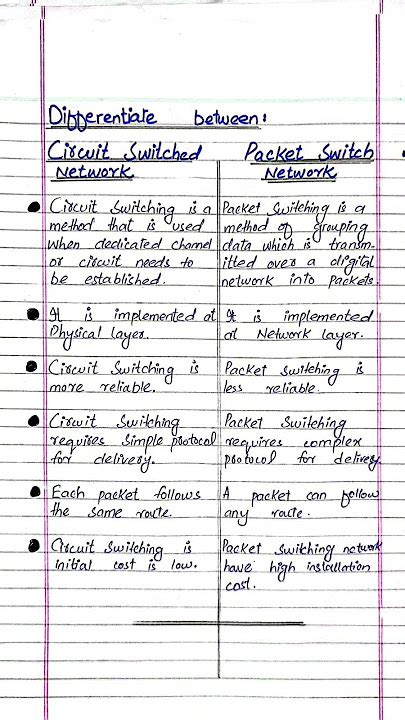 Differentiate between:
Circuit Switched
Network
Packet Switch
Network
Circuit Switching is a
method that is used
when dedicated channel
or circuit needs to
be established.
Packet Switching is a
method of grouping
data which is transm-
itted over a digital
network into packets.
It is implemented at
Physical layer.
It is implemented
at Network layer.
Circuit Switching is
more reliable.
Packet Switching is
less reliable.
Circuit Switching
requires Simple protocol
for delivery.
Packet Switching
requires complex
protocol for delivery.
Each packet follows
the same route.
A packet can follow
any route.
Circuit Switching is
initial cost is low.
Packet Switching network
have high installation
cost.